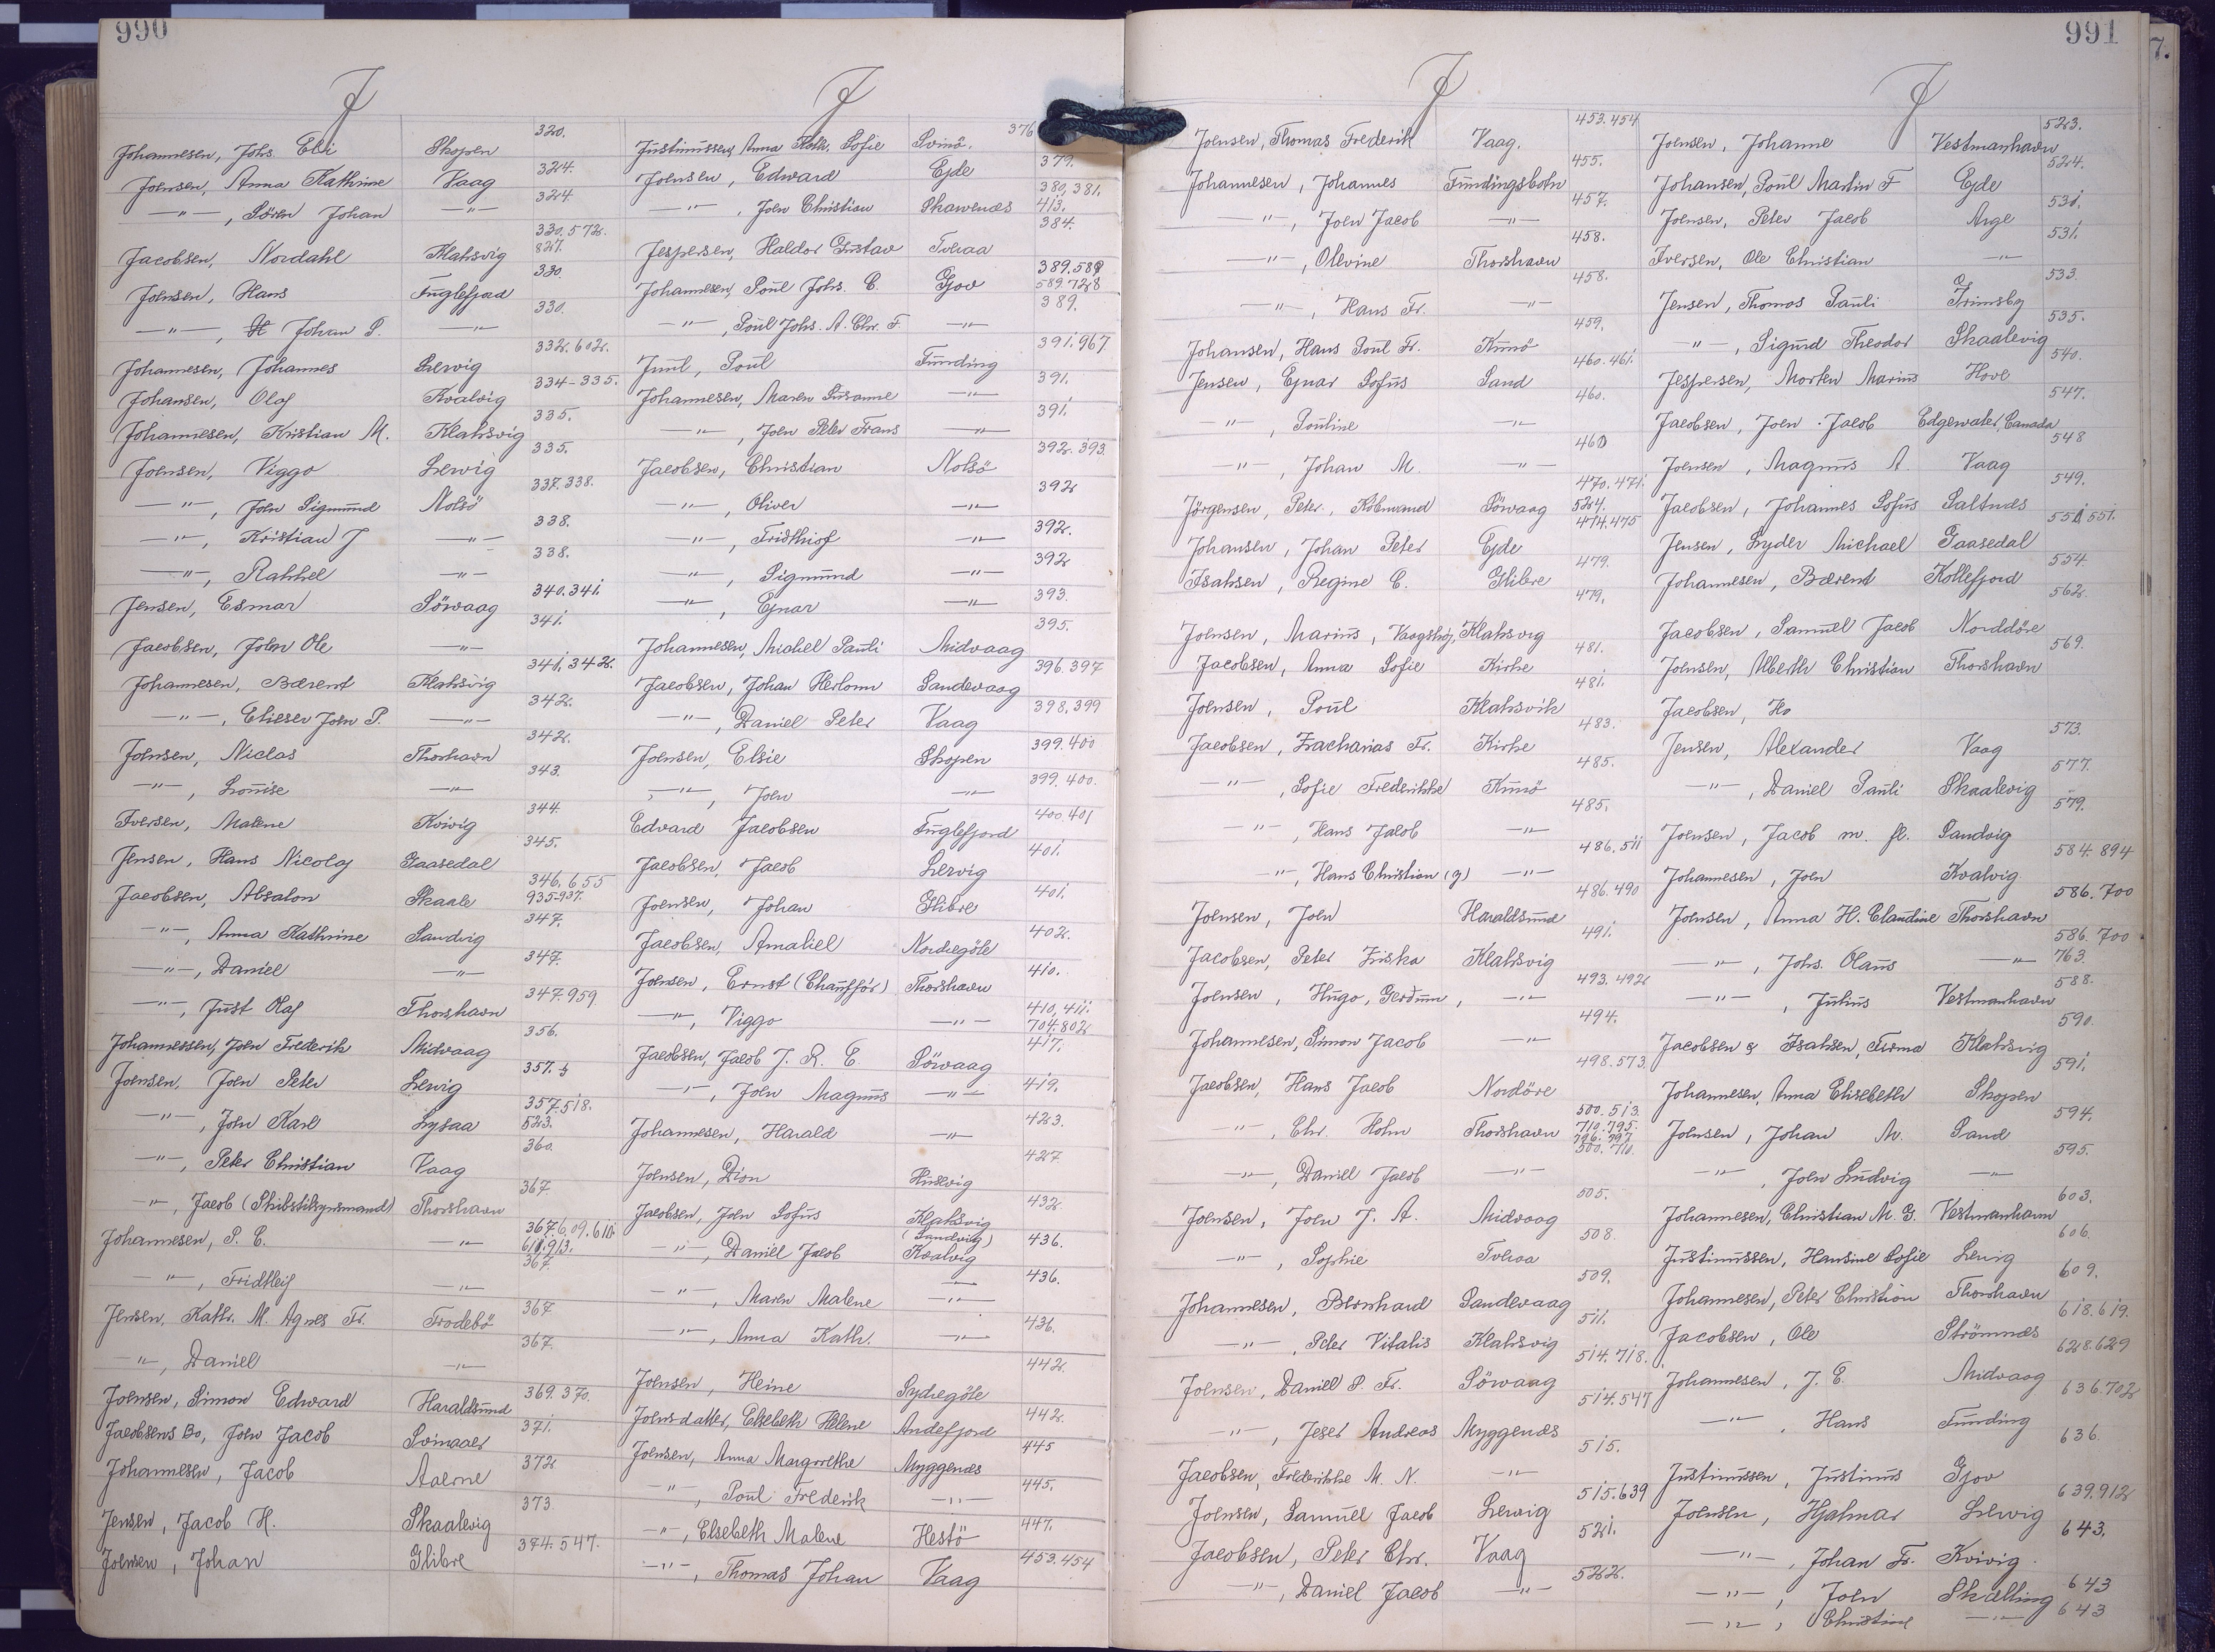 990
J
Johannesen, Johs. Eli Skopen 320.
Joensen, Anna Kathrine Vaag 324.
—"—, Sören Johan —"— 324.
Jacobsen, Nordahl Klaksvig 330.572. 827.
Joensen, Hans Fuglefjord 330.
—"—, Johan P. —"— 330.
Johannesen, Johannes Lervig 332.602.
Johansen, Olaf Kvalvig 334-335.
Johannesen, Kristian M. Klaksvig 335.
Joensen, Viggo Lervig 335.
—"—, Joen Sigmund Nolsö 337.338.
—"—, Kristian J —"— 338.
—"—, Rakkel —"— 338.
Jensen, Esmar Sörvaag 340.341.
Jacobsen, Joen Ole —"— 341.
Johannesen, Bærent Klaksvig 341.342.
—"—, Elieser Joen P. —"— 342.
Joensen, Niclas Thorshavn 342.
—"—, Louise —"— 343.
Iversen, Malene Kvivig 344.
Jensen, Hans Nicolaj Gaasedal 345.
Jacobsen, Absalon Skaale 346.655 935-937.
—"—, Anna Kathrine Sandvig 347.
—"—, Daniel —"— 347.
—"—, Just Olaf Thorshavn 347.959
Johannessen, Joen Frederik Midvaag 356.
Joensen, Joen Peter Lervig 357.
—"—, Joen Karl Lysaa 357.518. 523.
—"—, Peter Christian Vaag 360.
—"—, Jacob (Skibstilsynsmand) Thorshavn 367
Johannesen, P. C. —"— 367.609.610. 611.913.
—"—, Fridtleif —"— 367.
Jensen, Kathr. M. Agnes Fr. Frodebö 367
—"—, Daniel —"— 367.
Joensen, Simon Edward Haraldsund 369.370.
Jacobsens Bo, Joen Jacob Svinaaer 371.
Johannesen, Jacob Aaerne 372
Jensen, Jacob H. Skaalevig 373
Joensen, Johan Glibre 374.547.
J
Justinussen, Anna Kath. Sofie Svinö. 376
Joensen, Edward Ejde 379.
—"—, Joen Christian Skarvenæs 380,381. 413.
Jespersen, Haldor Gustav Tveraa 384.
Johannesen, Poul Johs. C. Gjov 389.588 589.728
—"—, Poul Johs. A. Chr. F. —"— 389.
Juul, Poul Funding 391.967
Johannesen, Maren Susanne —"— 391.
—"—, Joen Peter Frans —"— 391.
Jacobsen, Christian Nolsö 392.393.
—"—, Oliver —"— 392
—"—, Fridthiof —"— 392.
—"—, Sigmund —"— 392
—"—, Ejnar —"— 393.
Johannesen, Michel Pauli Midvaag 395.
Jacobsen, Johan Herlom Sandevaag 396.397
—"—, Daniel Peter Vaag 398.399
Joensen, Elsie Skopen 399.400
—"—, Joen —"— 399.400.
Edvard Jacobsen Fuglefjord 400.401
Jacobsen, Jacob Lervig 401.
Joensen, Johan Glibre 401.
Jacobsen, Amaliel Nordregöte 402.
Joensen, Ernst (Chauffør) Thorshavn 410.
—"—, Viggo —"— 410,411. 704.802
Jacobsen, Jacob J. R. E. Sörvaag 417.
—"—, Joen Magnus —"— 419.
Johannesen, Harald —"— 423.
Joensen, Dion Husevig 427
Jacobsen, Joen Sofus Klaksvig (Sandvig) 432.
—"—, Daniel Jacob Kvalvig 436.
—"—, Maren Malene —"— 436.
—"—, Anna Kath. —"— 436.
Joensen, Heine Sydregöte 442.
Joensdatter, Elsebeth Helene Andefjord 442.
Joensen, Anna Margrethe Myggenæs 445
—"—, Poul Frederik —"— 445.
—"—, Elsebeth Malene Hestö 447.
—"—, Thomas Johan Vaag 453.454
991
J
Joensen, Thomas Frederik Vaag. 453.454
Johannesen, Johannes Fundingsbotn 455.
—"—, Joen Jacob —"— 457.
—"—, Olevine Thorshavn 458.
—"—, Hans Fr. —"— 458.
Johansen, Hans Poul Fr. Kunö 459.
Jensen, Ejnar Sofus Sand 460.461.
—"—, Pouline —"— 460.
—"—, Johan M. —"— 460
Jörgensen, Peter, Köbmand Sörvaag 470.471. 524.
Johansen, Johan Peter Ejde 474.475
Isaksen, Regine C. Glibre 479.
Joensen, Marius, Vaagshøj, Klaksvig 479.
Jacobsen, Anna Sofie Kirke 481.
Joensen, Poul Klaksvik 481.
Jacobsen, Zacharias Fr. Kirke 483.
—"—, Sofie Frederikke Kunö 485.
—"—, Hans Jacob —"— 485.
—"—, Hans Christian (g) —"— 486.511
Joensen, Joen Haraldsund 486.490
Jacobsen, Peter Friska Klaksvig 491.
Joensen, Hugo, Gerdum, —"— 493.492
Johannesen, Simon Jacob —"— 494.
Jacobsen, Hans Jacob Nordöre 498.573.
—"—, Chr. Holm Thorshavn 500.513. 710.795. 796.797
—"—, Daniel Jacob —"— 500.710.
Joensen, Joen J. A. Midvaag 505.
—"—, Sophie Tveraa 508.
Johannesen, Bernhard Sandevaag 509.
—"—, Peter Vitalis Klaksvig 511.
Joensen, Daniel P. Fr. Sörvaag 514.718.
—"—, Jeser Andreas Myggenæs 514.547
Jacobsen, Frederikke M. N. —"— 515.
Joensen, Samuel Jacob Lervig 515.639
Jacobsen, Peter Chr. Vaag 521.
—"—, Daniel Jacob —"— 522.
J
Joensen, Johanne Vestmanhavn 523.
Johansen, Poul Martin F Ejde 524.
Joensen, Peter Jacob Arge 531.
Iversen, Ole Christian —"— 531.
Jensen, Thomas Pauli Grimsby 533
—"—, Sigurd Theodor Skaalevig 535.
Jespersen, Morten Marius Hove 540.
Jacobsen, Joen Jacob Edgewater, Canada 547.
Joensen, Magnus A. Vaag 548
Jacobsen, Johannes Sofus Saltnæs 549.
Jensen, Lyder Michael Gaasedal 551.
Johannesen, Bærent Kollefjord 554.
Jacobsen, Samuel Jacob Norddöre 562.
Joensen, Alberth Christian Thorshavn 569.
Jacobsen, Ho
Jensen, Alexander Vaag 573.
—"—, Daniel Pauli Skaalevig 577.
Joensen, Jacob m. fl. Sandvig 579.
Johannesen, Joen Kvalvig 584.894
Joensen, Anna H. Claudine Thorshavn 586.700
—"—, Johs. Olaus —"— 586.700 763.
—"—, Julius Vestmanhavn 588.
Jacobsen & Isaksen, Firma Klaksvig 590.
Johannesen, Anna Elisebeth Skopen 591.
Joensen, Johan M. Sand 594.
—"—, Joen Ludvig —"— 595.
Johannesen, Christian M. G. Vestmanhavn 603.
Justinussen, Hansine Sofie Lervig 606.
Johannesen, Peter Christian Thorshavn 609.
Jacobsen, Ole Strömnæs 618.619.
Johannesen, J. E. Midvaag 628.629
—"—, Hans Funding 636.702
Justinussen, Justinus Gjov 636.
Joensen, Hjalmar Lervig 639.912
—"—, Johan Fr. Kvivig 643.
—"—, Joen Skælling 643
—"—, Christine —"— 643
7.